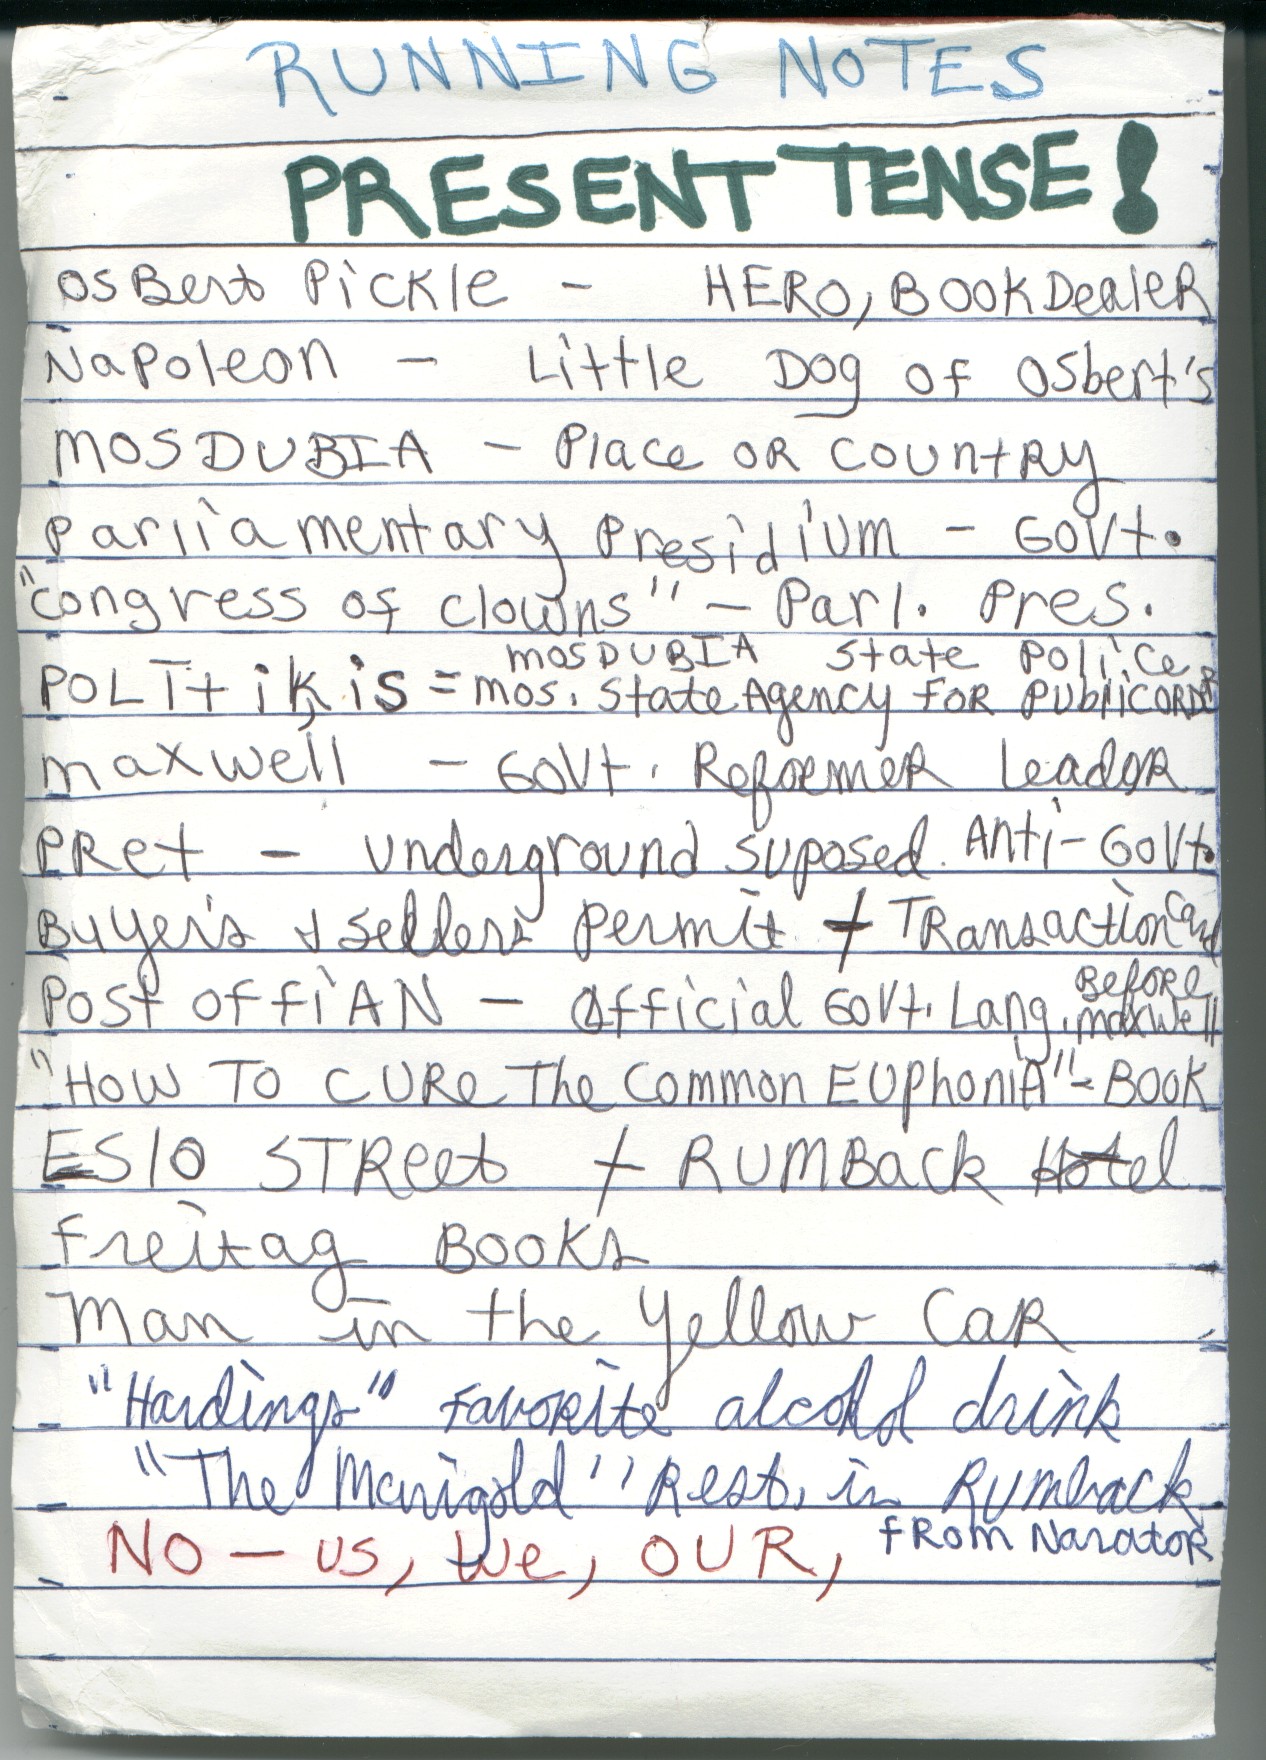 RUNNING NOTES
PRESENT TENSE!
OSBert PickLe - HERO, BOOKDealeR
Napoleon - Little Dog of Osbert's
MOSDUBIA - Place OR COUntRy
Parliamentary Presidium - GOVt.
"Congress of Clowns" - Parl. Pres.
MOSDUBIA State Police
POLITtikis = mos. State Agency FOR Public
maxwell - GOVt. Reformer Leader
PRet - Underground Suposed. Anti-GOVt.
Buyer's & Sellers Permit + TRansaction Card
Before
Post OffiAN - Official GOVt. Lang. maxwell
"HOW TO CURe The Common EUphoniA" - BOOK
ES10 STReet + RUMBack Hotel
Freitag BOOKs
Man in the Yellow CaR
"Hardings" Favorite alcohol drink
"The Marigold" Rest. in Rumback
NO - US, We, OUR, fROm NaratoR